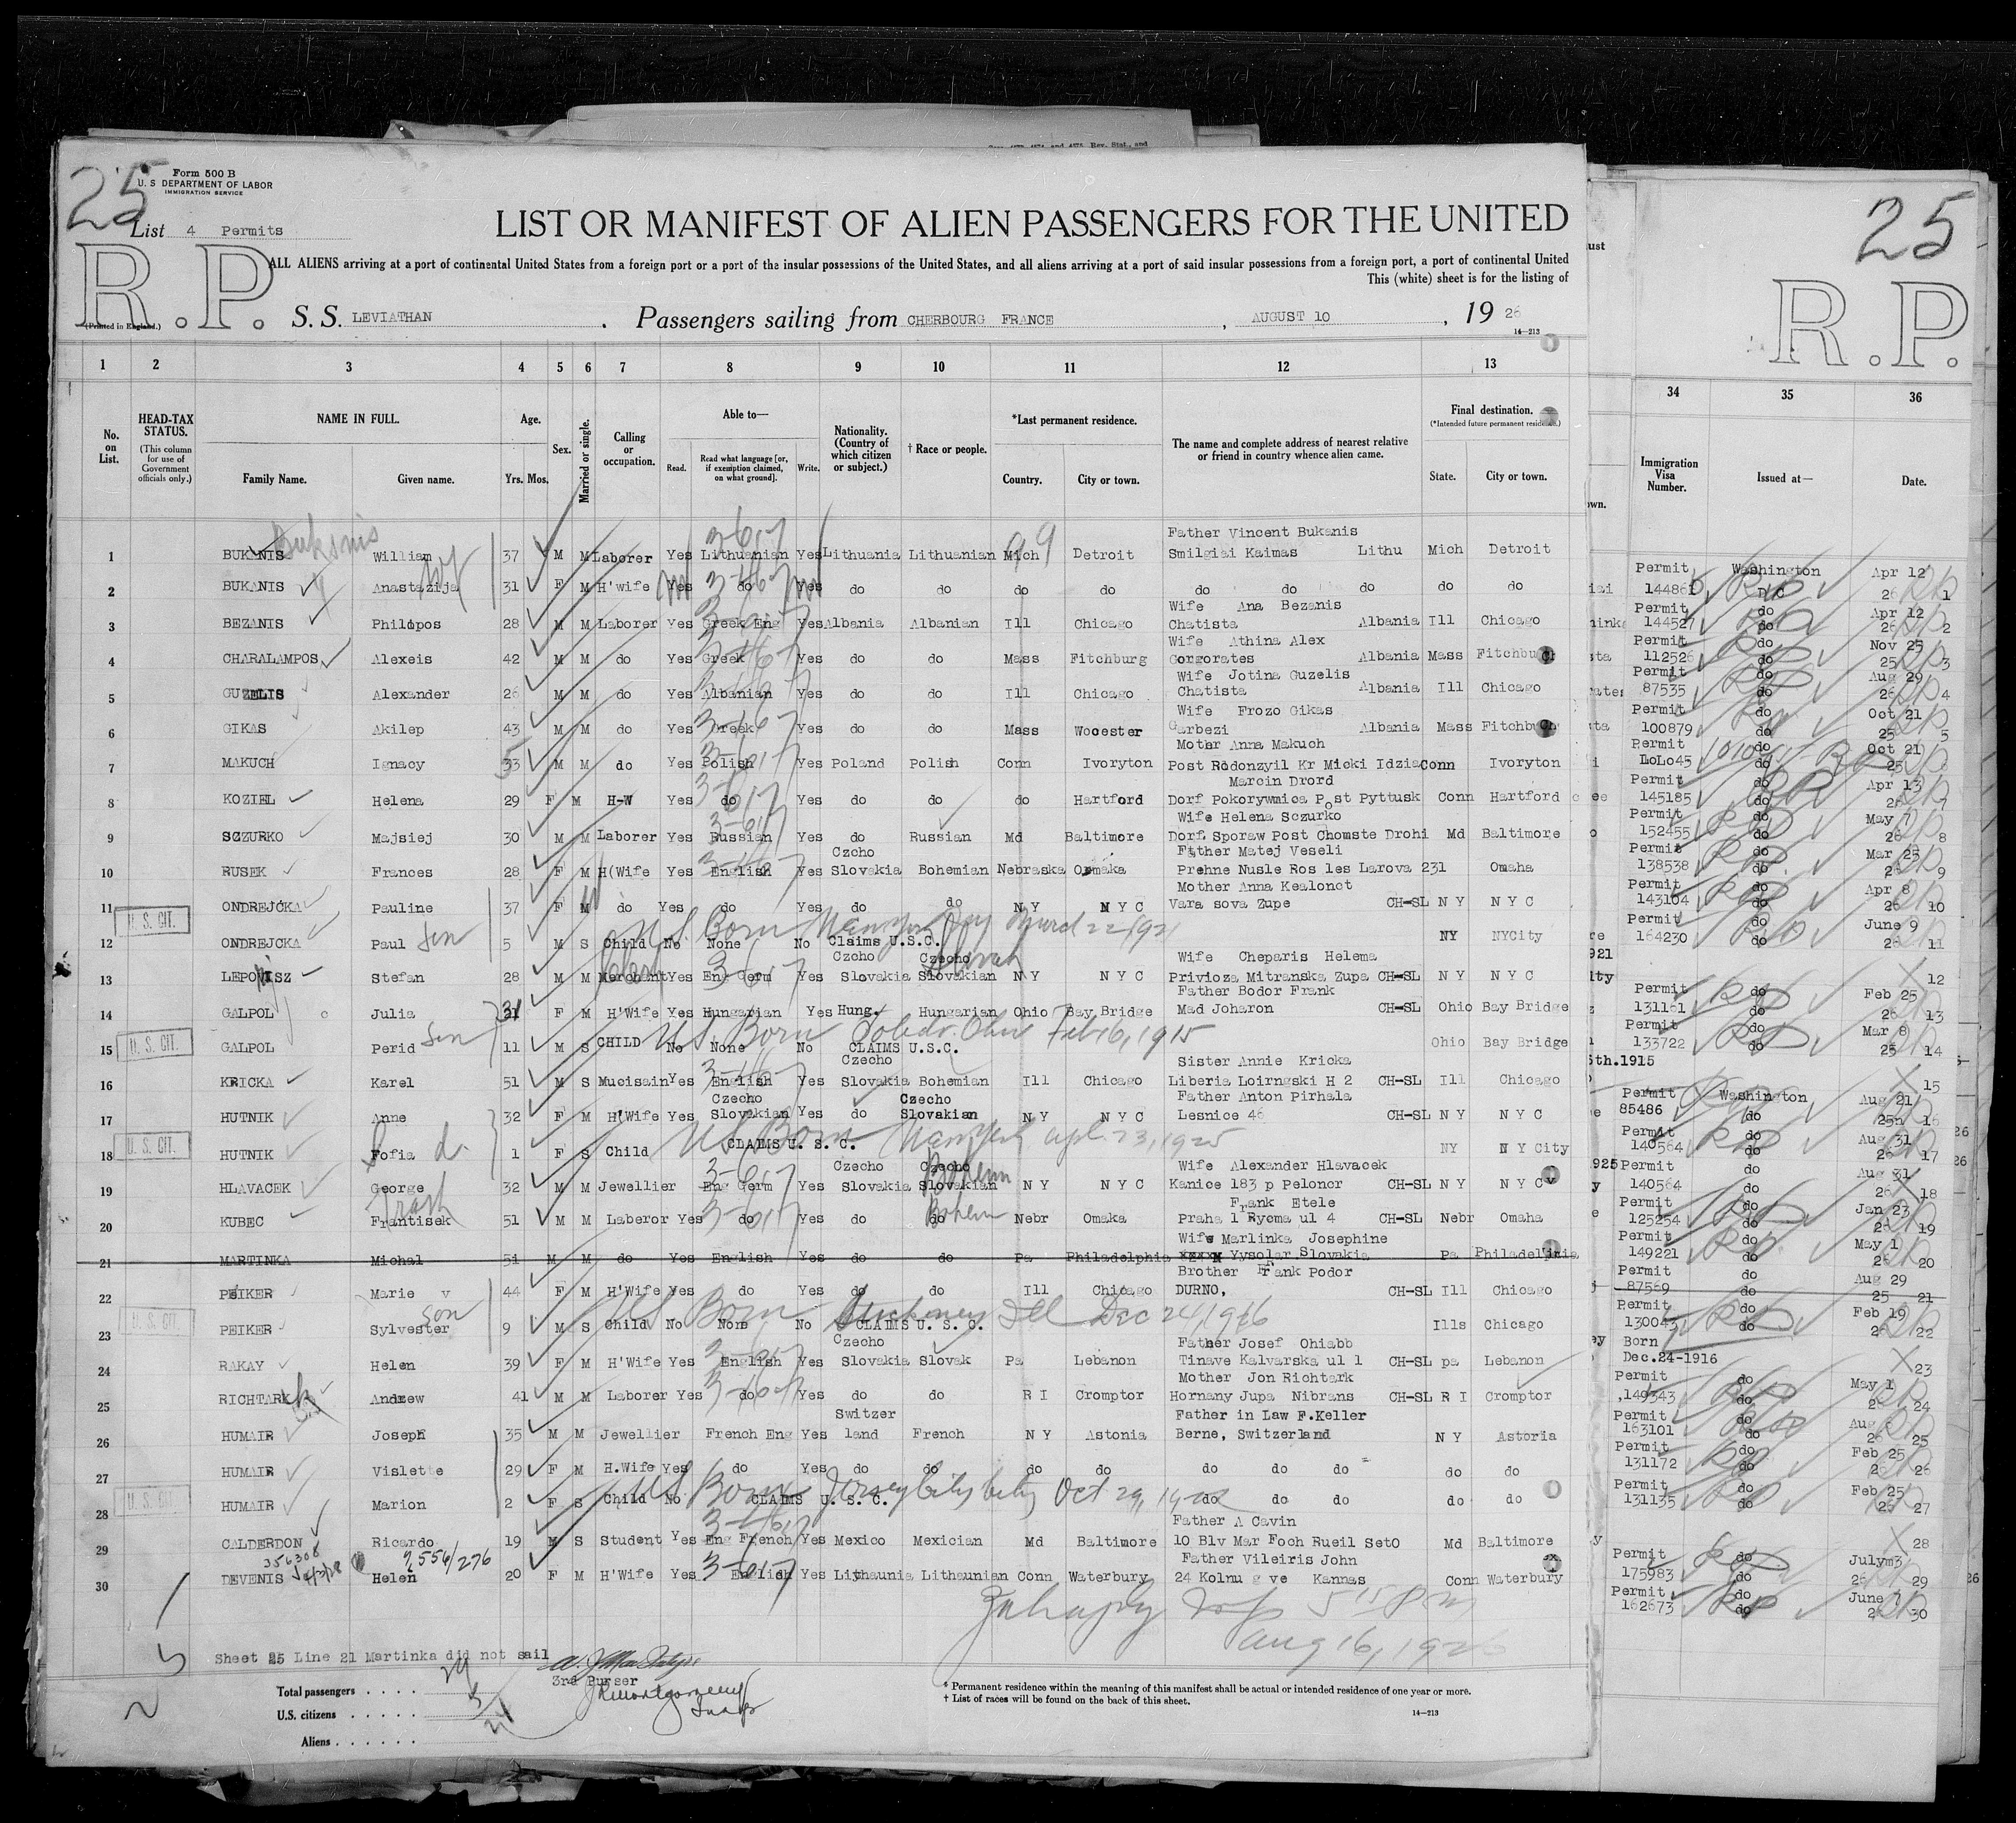 25
Form 500 B
U. S DEPARTMENT OF LABOR
IMMIGRATION SERVICE
List 4 Permits
R.P.
(Printed in England.)
LIST OR MANIFEST OF ALIEN PASSENGERS FOR THE UNITED
ALL ALIENS arriving at a port of continental United States from a foreign port or a port of the insular possessions of the United States, and all aliens arriving at a port of said insular possessions from a foreign port, a port of continental United
This (white) sheet is for the listing of
S. S. LEVIATHAN . Passengers sailing from CHERBOURG FRANCE , AUGUST 10 , 19 26
14—213
1 2 3 4 5 6 7 8 9 10 11 12 13
No. on List.
HEAD-TAX STATUS.
(This column for use of Government officials only.)
NAME IN FULL.
Family Name. Given name.
Age.
Yrs. Mos.
Sex.
Married or single.
Calling or occupation.
Able to—
Read. Read what language [or, if exemption claimed, on what ground]. Write.
Nationality. (Country of which citizen or subject.)
† Race or people.
*Last permanent residence.
Country. City or town.
The name and complete address of nearest relative or friend in country whence alien came.
Final destination.
(*Intended future permanent residence.)
State. City or town.
Bukanis
Father Vincent Bukanis
1 BUKANIS William 37 M M Laborer Yes Lithuanian Yes Lithuania Lithuanian Mich Detroit Smilgiai Kaimas Lithu Mich Detroit
2 BUKANIS Anastazija 31 F M H'wife Yes do Yes do do do do do do do do do do
Wife Ana Bezanis
3 BEZANIS Philopos 28 M M Laborer Yes Greek Eng Yes Albania Albanian Ill Chicago Chatista Albania Ill Chicago
Wife Athina Alex
4 CHARALAMPOS Alexeis 42 M M do Yes Greek Yes do do Mass Fitchburg Gorgorates Albania Mass Fitchburg
Wife Jotina Guzelis
5 GUZELIS Alexander 26 M M do Yes Albanian Yes do do Ill Chicago Chatista Albania Ill Chicago
Wife Frozo Gikas
6 GIKAS Akilep 43 M M do Yes Greek Yes do do Mass Wocester Garbezi Albania Mass Fitchburg
Mothr Anna Makuch
7 MAKUCH Ignacy 33 M M do Yes Polish Yes Poland Polish Conn Ivoryton Post Rodonzyil Kr Micki Idzia Conn Ivoryton
Marcin Drord
8 KOZIEL Helena 29 F M H-W Yes do Yes do do do Hartford Dorf Pokorywmica Post Pyttusk Conn Hartford
Wife Helena Sczurko
9 SCZURKO Majsiej 30 M M Laborer Yes Russian Yes do Russian Md Baltimore Dorf Sporaw Post Chomste Drohi Md Baltimore
Czcho Father Matej Veseli
10 RUSEK Frances 28 F M H(Wife Yes English Yes Slovakia Bohemian Nebraska Omaka Prehne Nusle Ros les Larova 231 Omaha
Mother Anna Kealonot
11 ONDREJCKA Pauline 37 F M do Yes do Yes do do N Y N Y C Vara sova Zupe CH-SL N Y N Y C
U. S. CIT.
U.S. Born
12 ONDREJCKA Paul son 5 M S Child No None No Claims U.S.C. NY NYCity
Czcho Czecho Slovak Wife Cheparis Helema
13 LEPOVISZ Stefan 28 M M Merchant Yes Eng Germ Yes Slovakia Slovakian N Y N Y C Privioza Mitranska Zupa CH-SL N Y N Y C
Father Bodor Frank
14 GALPOL Julia 31 F M H'Wife Yes Hungarian Yes Hung. Hungarian Ohio Bay Bridge Mad Joharon CH-SL Ohio Bay Bridge
U. S. CIT.
U.S. Born Toledo Ohio Feb 16, 1915
15 GALPOL Perid son 11 M S CHILD No None No CLAIMS U.S.C. Ohio Bay Bridge
Czecho Sister Annie Kricka
16 KRICKA Karel 51 M S Mucisain Yes English Yes Slovakia Bohemian Ill Chicago Liberia Loirngski H 2 CH-SL Ill Chicago
Czecho Czecho Father Anton Pirhala
17 HUTNIK Anne 32 F M H'Wife Yes Slovakian Yes do Slovakian N Y N Y C Lesnice 46 CH-SL N Y N Y C
U. S. CIT.
US Born New York apl. 23, 1925
18 HUTNIK Fofia d. 1 F S Child CLAIMS U. S. C. NY N Y City
Czecho Czecho Bohem Wife Alexander Hlavacek
19 HLAVACEK George 32 M M Jewellier Eng Germ Yes Slovakia Slovakian N Y N Y C Kanice 183 p Pelonor CH-SL N Y N Y C
Bohem Frank Etele
20 KUBEC Frantisek 51 M M Laberor Yes do Yes do do Nebr Omaka Praha 1 Rycma ul 4 CH-SL Nebr Omaha
Wife Marlinka Josephine
21 MARTINKA Michal 51 M M do Yes English Yes do do Pa Philadelphia xxxxx Yysolar Slovakia Pa Philadelphia
Brother Frank Podor
22 PEIKER Marie 44 F M H'Wife Yes do Yes do do Ill Chicago DURNO, CH-SL Ill Chicago
U. S. CIT.
US Born Ill Dec 24, 1916
23 PEIKER Sylvester son 9 M S Child No Non No CLAIMS U. S. C. Ills Chicago
Czecho Father Josef Ohiabb
24 RAKAY Helen 39 F M H'Wife Yes English Yes Slovakia Slovak Pa Lebanon Tinave Kalvarska ul 1 CH-SL pa Lebanon
Mother Jon Richtark
25 RICHTARK Andrew 41 M M Laborer Yes do Yes do do R I Cromptor Hornany Jupa Nibrans CH-SL R I Cromptor
Switzer Father in Law F.Keller
26 HUMAIR Joseph 35 M M Jewellier French Eng Yes land French N Y Astonia Berne, Switzerland N Y Astoria
27 HUMAIR Vislette 29 F M H.Wife Yes do Yes do do do do do do do do do
U. S. CIT.
US Born Jersey City Oct 29, 19
28 HUMAIR Marion 2 F S Child No CLAIMS U. S. C. do do do do do
Father A Cavin
29 CALDERDON Ricardo 19 M S Student Yes Eng French Yes Mexico Mexician Md Baltimore 10 Blv Mar Foch Rueil SetO Md Baltimore
356308 2,556/276 Father Vileiris John
30 DEVENIS Helen 20 F M H'Wife Yes English Yes Lithaunia Lithaunian Conn Waterbury 24 Kolnu g ve Kannas Conn Waterbury
3-6-17
5 15 PM
Aug 16, 1926
Sheet 25 Line 21 Martinka did not sail
3rd Purser
Total passengers . . . . 29
U.S. citizens . . . . . 5
Aliens . . . . . . 24
* Permanent residence within the meaning of this manifest shall be actual or intended residence of one year or more.
† List of races will be found on the back of this sheet.
14—213
25
R.P.
34 35 36
Immigration Visa Number. Issued at— Date.
Permit Washington Apr 12
144861 D/O 26 1
Permit do Apr 12
144527 do 26 2
Permit do Nov 25
112526 do 25 3
Permit do Aug 29
87535 do 26 4
Permit do Oct 21
100879 do 25 5
Permit do Oct 21
LoLo45 do 25
Permit do Apr 13
145185 do 26 7
Permit do May 7
152455 do 26 8
Permit do Mar 25
138538 do 26 9
Permit do Apr 8
143104 do 26 10
Permit do June 9
164230 do 26 11
12
Permit do Feb 25
131161 do 26 13
Permit do Mar 8
133722 do 25 14
5th.1915
15
Permit Washington Aug 21
85486 do 25 16
Permit do Aug 31
140564 do 26 17
1925 Permit do Aug 31
140564 do 26 18
Permit do Jan 23
125254 do 26 19
Permit do May 1
149221 do 26 20
Permit do Aug 29
87569 do 25 21
Permit do Feb 19
130043 do 26 22
Born
Dec.24-1916
23
Permit do May 1
149343 do 26 24
Permit do Aug
163101 do 26 25
Permit do Feb 25
131172 do 26 26
Permit do Feb 25
131135 do 26 27
28
Permit do Julym3
175983 do 26 29
Permit do June 7
162673 do 26 30